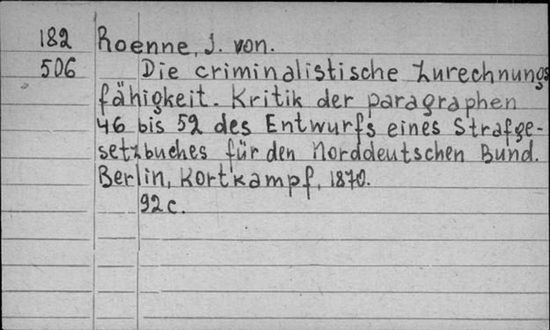 182 Roenne, J. von.
506 Die criminalistische Zurechnungs
fähigkeit. Kritik der paragraphen
46 bis 52 des Entwurfs eines Strafge-
setzbuches für den Norddeutschen Bund.
Berlin, Kortkampf, 1870.
92 c.